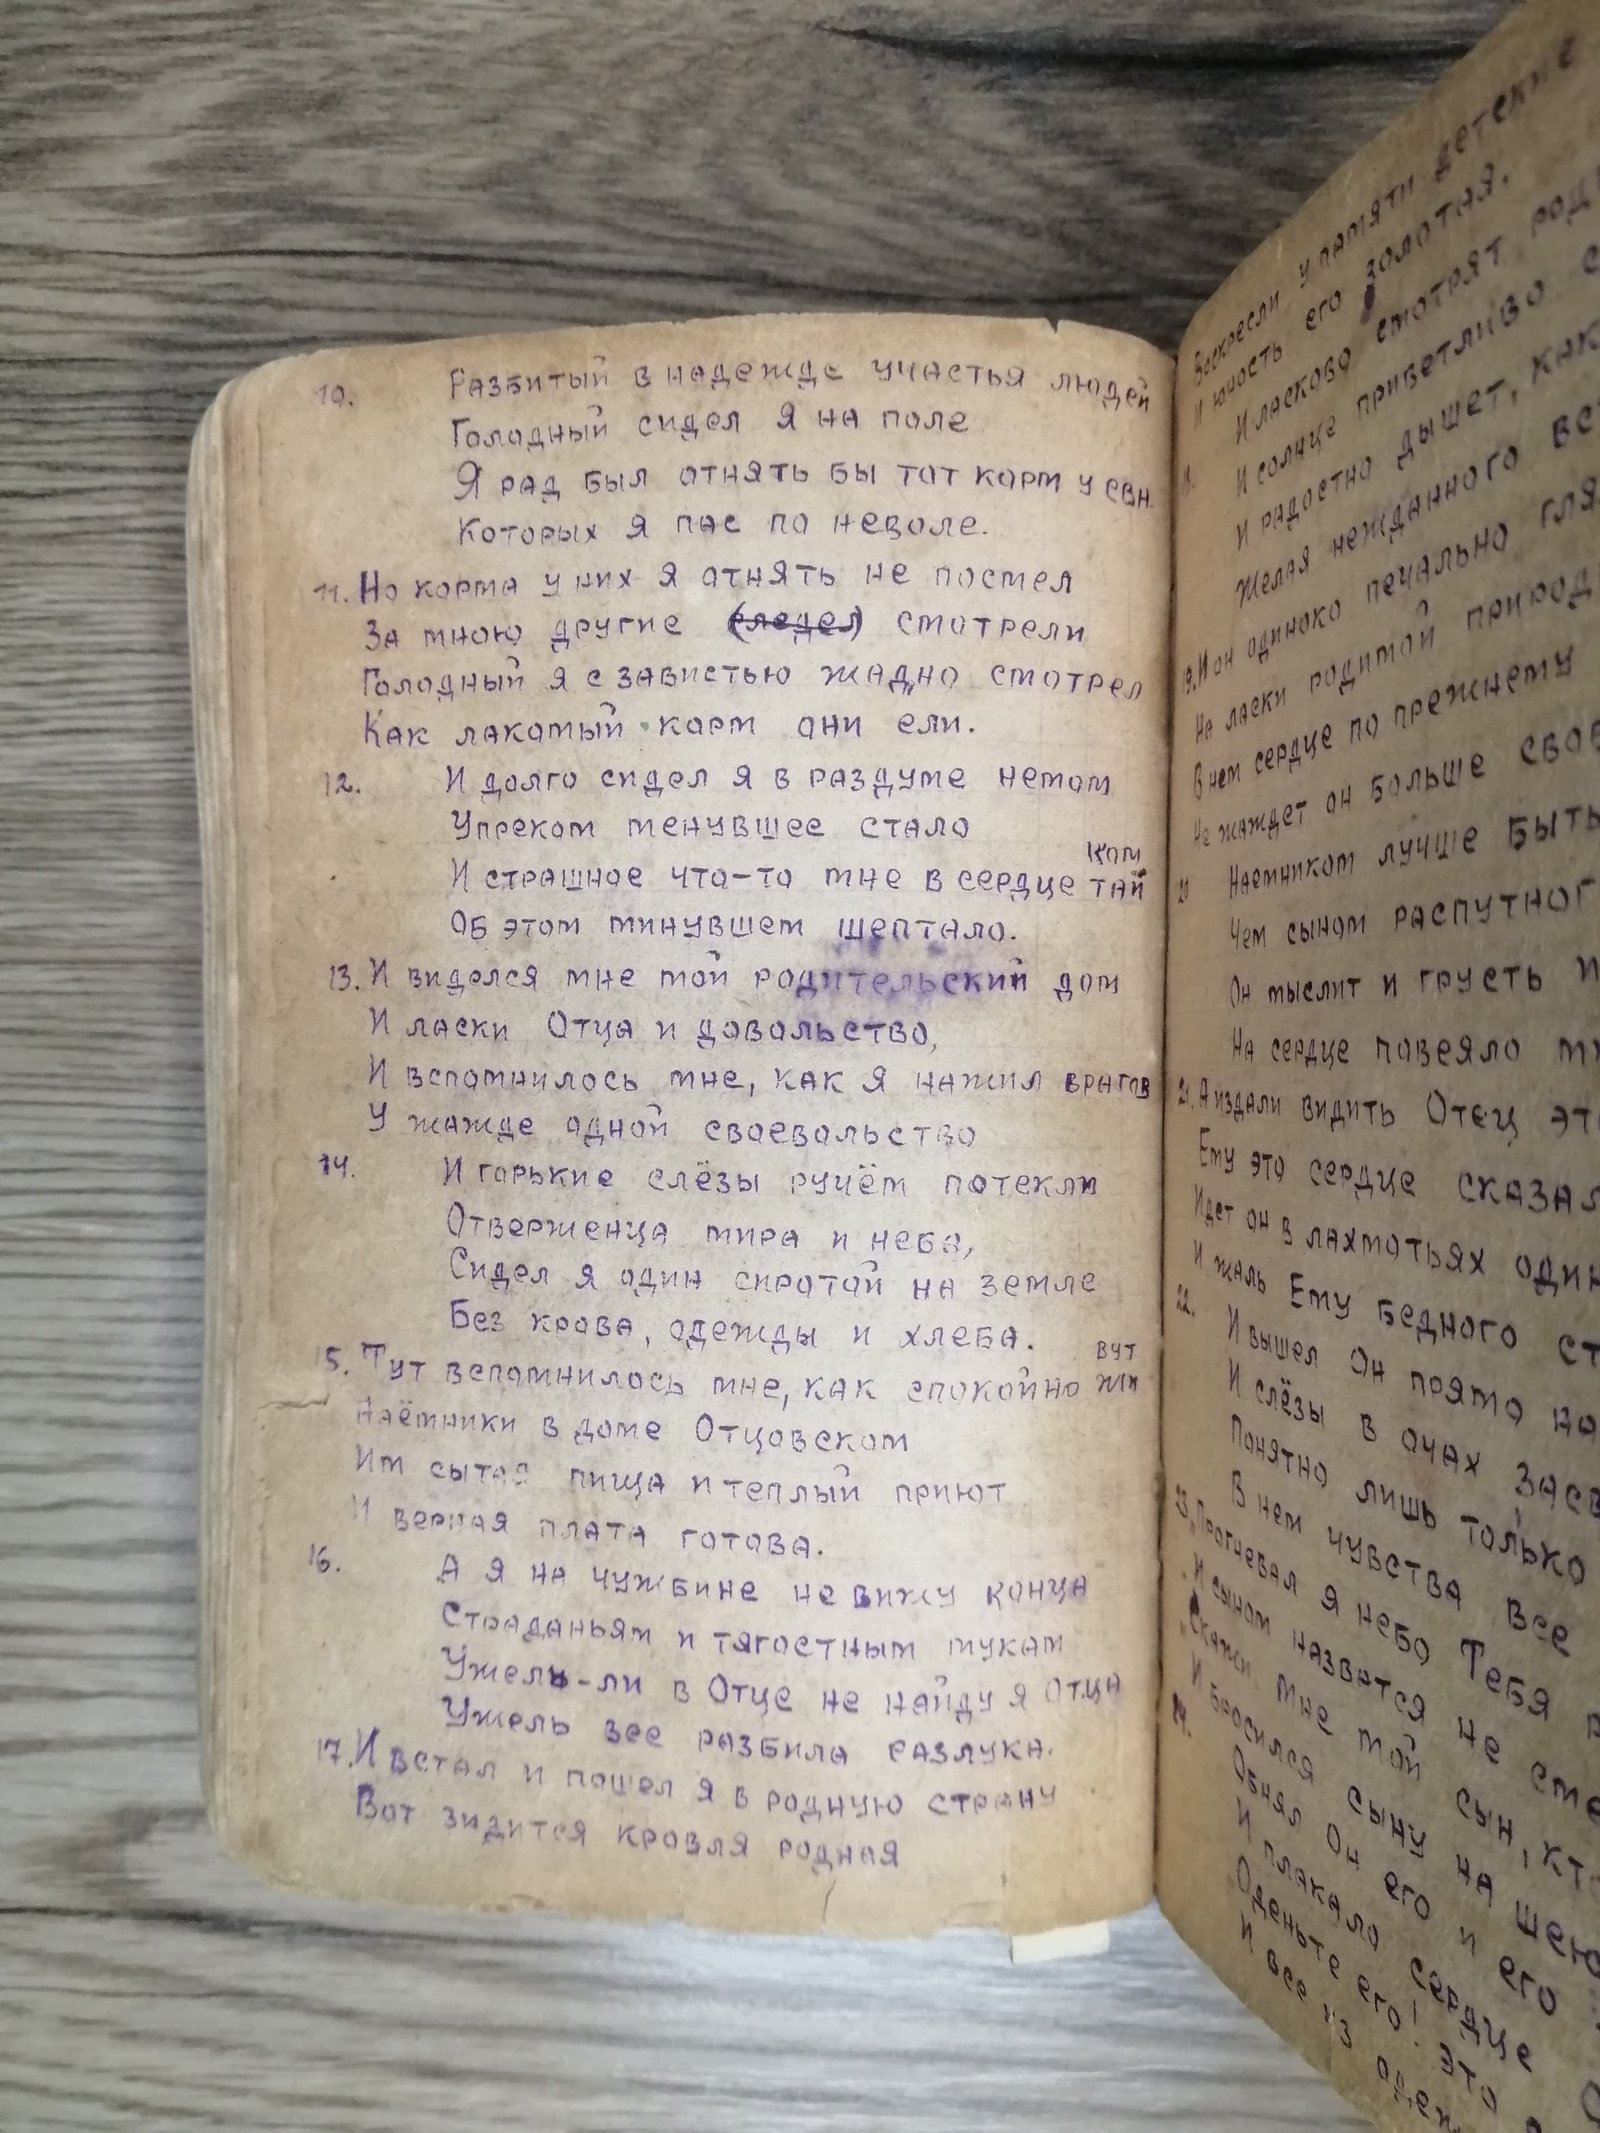 10. Разбитый в надежде участья людей
Голодный сидел я на поле
Я рад был отнять бы тот корм у свн
Которых я пас по неволе.
11. Но корма у них я отнять не посмел
За мною другие (следел) смотрели
Голодный я с завистью жадно смотрел
Как лакомый корм они ели.
12. И долго сидел я в раздуме немом
Упреком менувшее стало
И страшное что-то мне в сердце тай
ком
Об этом минувшем шептало.
13. И виделся мне мой родительский дом
И ласки Отца и довольство,
И вспомнилось мне, как я нажил врагов
У жажде одной своевольство
14. И горькие слёзы ручём потекли
Отверженца мира и неба,
Сидел я один сиротой на земле
Без крова, одежды и хлеба.
15. Тут вспомнилось мне, как спокойно жи
вут
Наёмники в доме Отцовском
Им сытая пища и теплый приют
И верная плата готова.
16. А я на чужбине не вижу конца
Страданьям и тягостным мукам
Ужель-ли в Отце не найду я Отца
Ужель все разбила разлука.
17. И встал и пошел я в родную страну
Вот видится кровля родная
Воскресли у памяти детские
И юность его золотая.
И ласково смотрят
И солнце приветливо
И радостно дышет, как
Желая нежданного
19. И он одиноко печально
На ласки родимой
В нем сердце по прежнему
Не жаждет он больше
20 Наемником лучше быть
Чем сыном
Он мыслит и грусть
На сердце повеяло
21. А издали видить Отец
Ему это сердце
Идет он в лахмотьях
И жаль Ему бедного
22. И вышел Он прямо
И слёзы в очах
Понятно лишь только
В нем чувства все
23. „Прогневал я небо Тебя
И сыном назватся не
„Скажи мне мой сын,
И бросился сыну на шею
24. Обнял Он его и его
И плакало сердце
Оденьте его! это
И все из